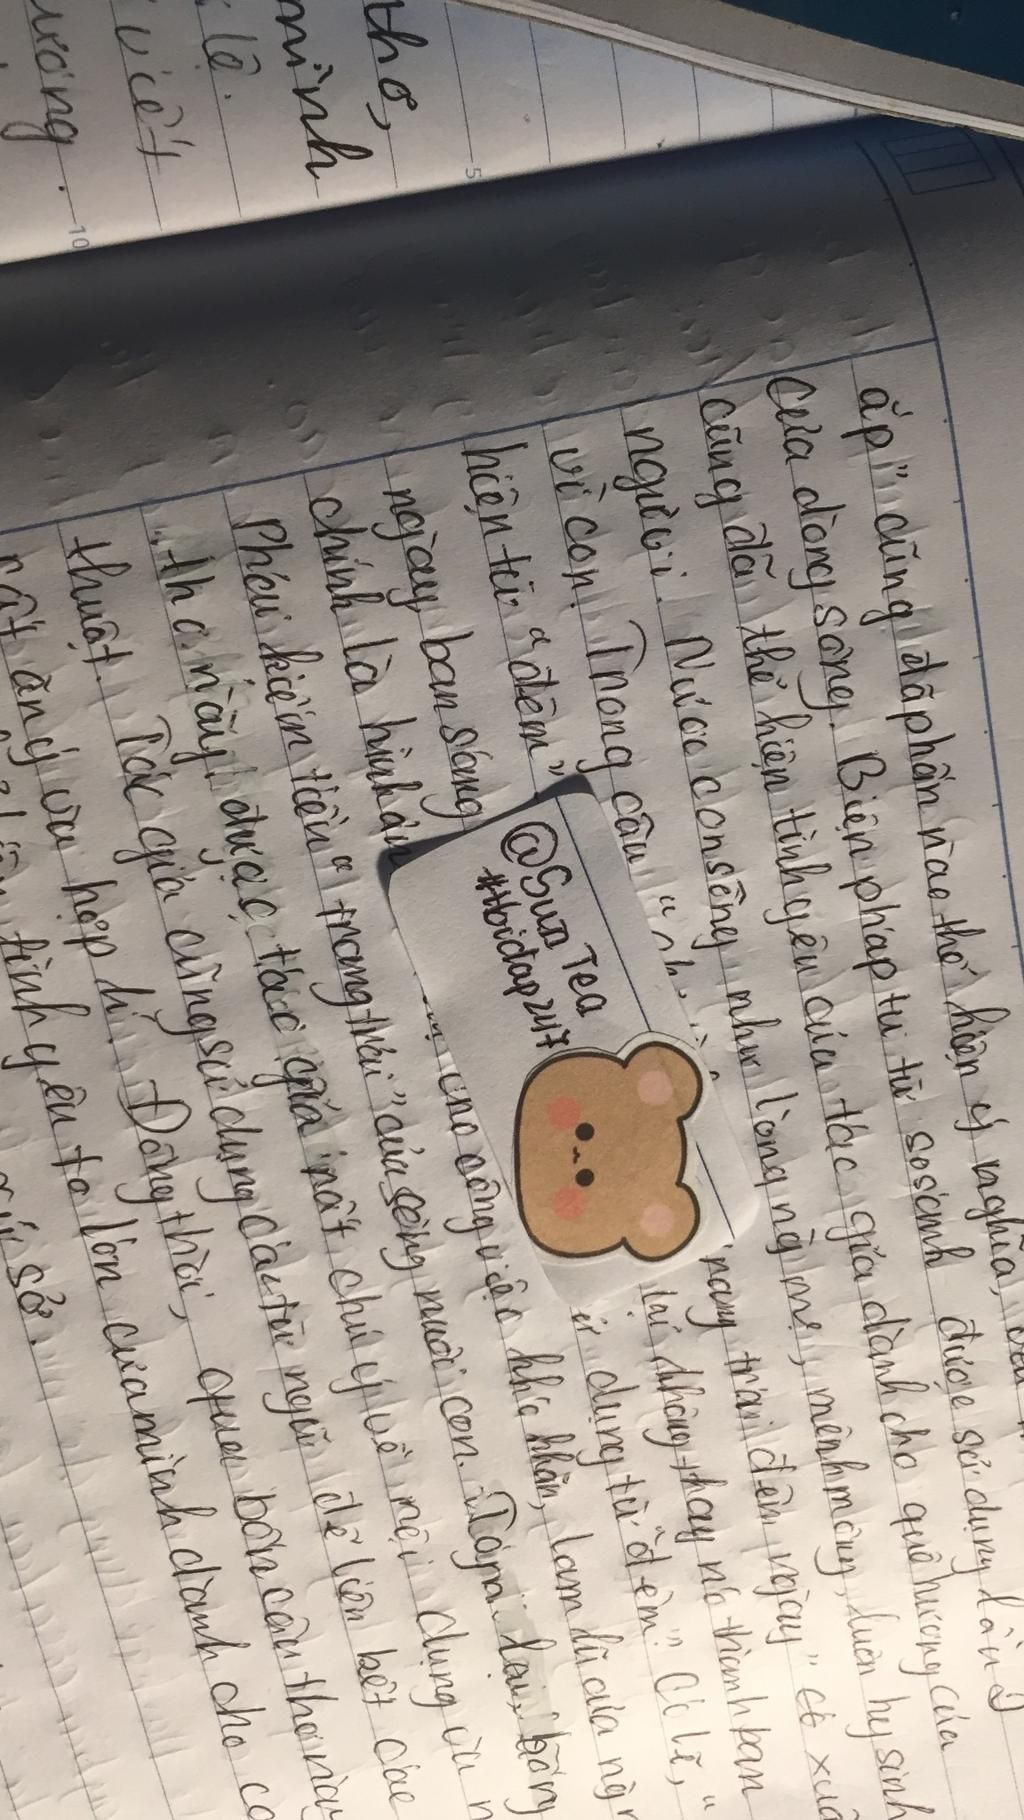 thơ,
mình
lẽ.
viết
ương.
5
10
ắp" cũng đã phần nào thể hiện ý nghĩa,
của dòng sông. Biện pháp tu từ so sánh được sử dụng ở câu 2
cũng đã thể hiện tình yêu của tác giả dành cho quê hương của
người. Nước con sông như lòng ng mẹ, mênh mông, luôn hy sinh
vì con. Trong câu " nặng trĩu đêm ngày" có xuất
hiện từ "đêm" lại không thay nó thành ban
ngày, ban sáng dụng từ "đêm". Có lẽ, "
chính là hình ản cho công việc khó khăn, lam lũ của ngườ
phéu kiếm tiền" trang trải" của sông nuôi con. Tóm lại, bằng
thơ này, được tác giả rất chú ý về nội dung và n
thuật. Tác giả cũng sử dụng các từ ngữ để liên kết các
rất ăn ý và hợp lí. Đồng thời, qua bốn câu thơ này
tình yêu to lớn của mình dành cho
xứ sở.
@Sun Tea
#Hoidap247